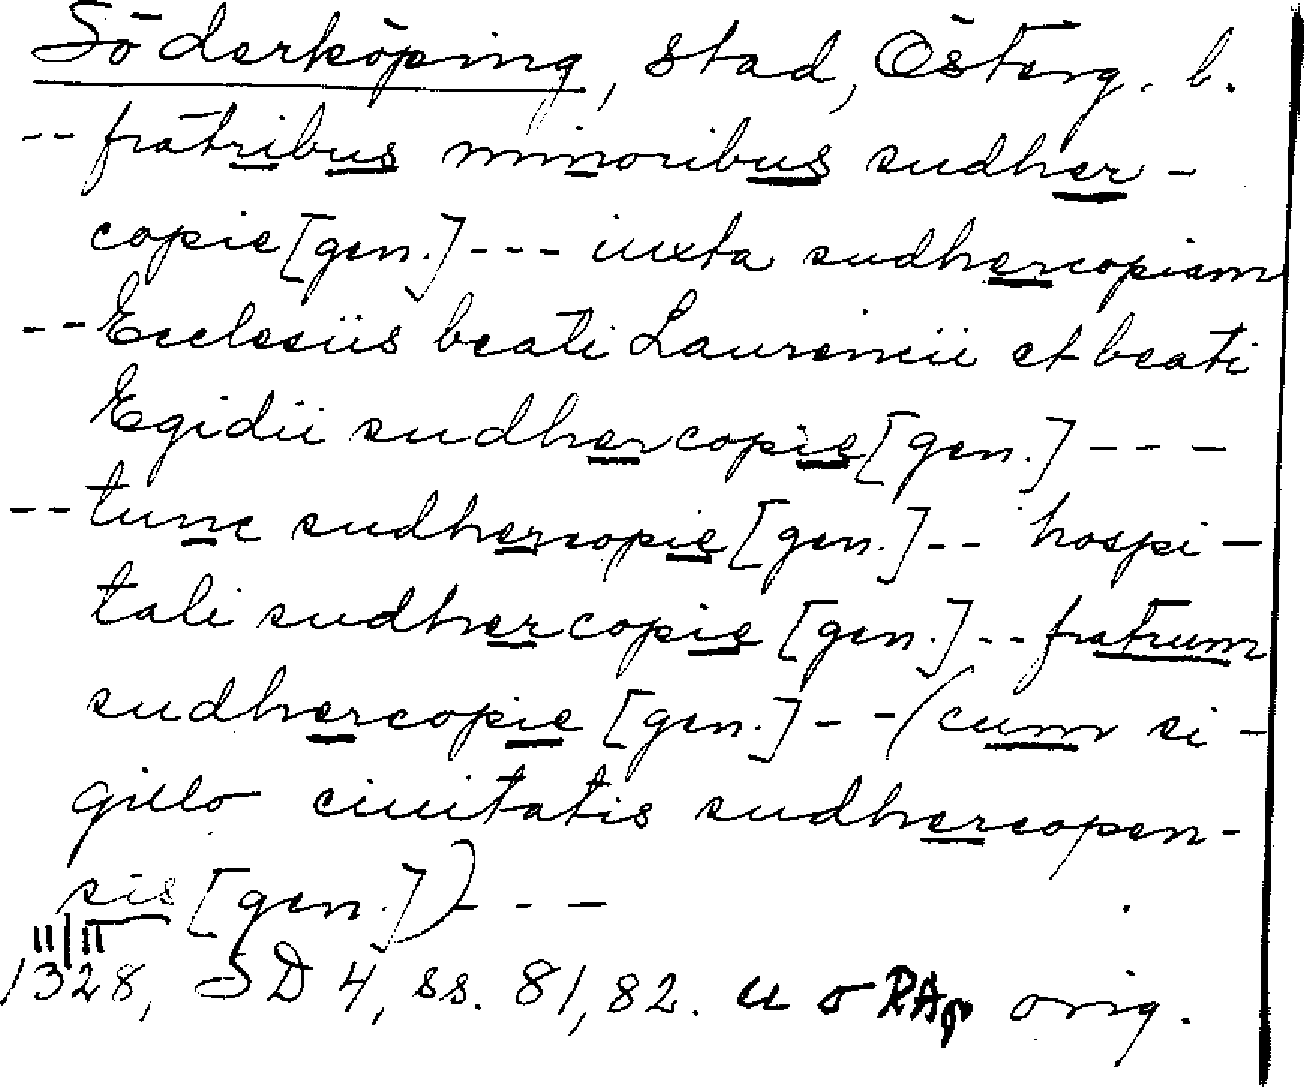 Söderköping, stad, Österg. l.
-- fratribus minoribus sudher-
copie [gen.] --- iuxta sudhercopiam
-- Ecclesiis beati Laurencii et beati
Egidii sudhercopie [gen.] ---
-- tunc sudhercopie [gen.] -- hospi-
tali sudhercopie [gen.] -- fratrum
sudhercopie [gen.] -- (cum si-
gillo ciuitatis sudhercopen-
sis [gen.]) ---
11/11
1328, SD 4, ss. 81, 82. u o RAp orig.